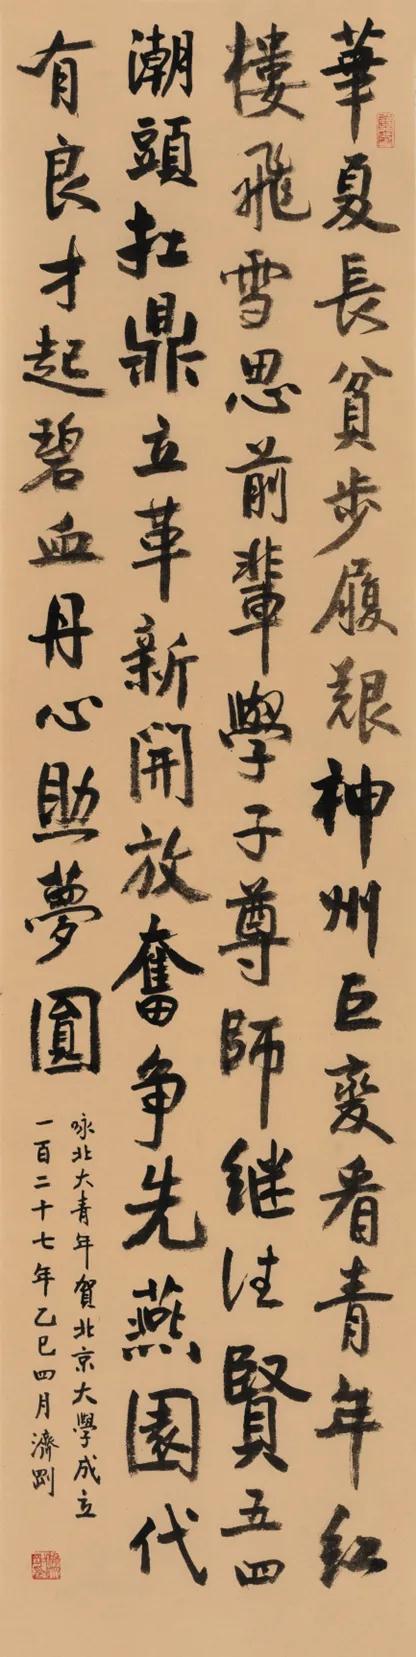 華夏長貧步履艱神州巨變看青年紅
樓飛雪思前輩學子尊師继往賢五四
潮頭扛鼎立革新開放奮争先燕園代
有良才起碧血丹心助夢圓
咏北大青年賀北京大學成立
一百二十七年乙巳四月濟剛